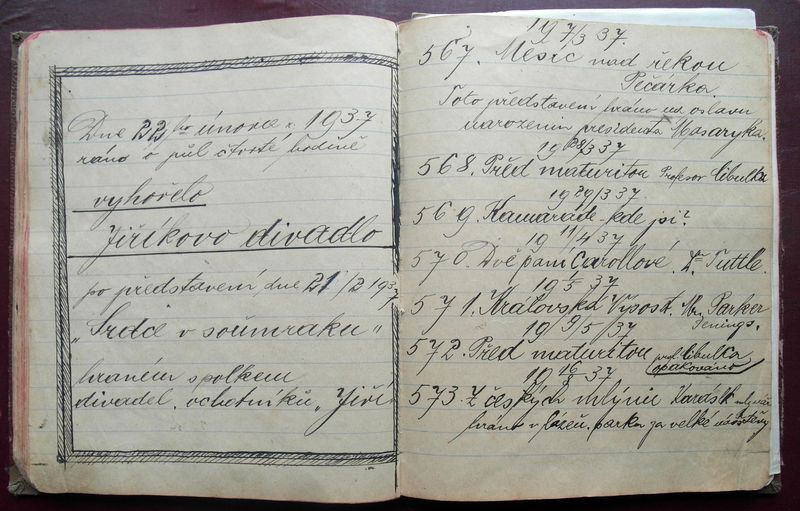 Dne 22ho února r. 1937
ráno o půl čtvrté hodině
vyhořelo
Jiříkovo divadlo
po představení dne 21/2 1937
„Srdce v soumraku"
hraném spolkem
divadel. ochotníků „Jiří"
19 7/3 37.
567. Měsíc nad řekou
Pečárka
Toto představení hráno na oslavu
narozenin presidenta Masaryka.
19 28/3 37
568. Před maturitou Profesor Cibulka
19 29/3 37.
569. Kamaráde - kde jsi?
19 11/4 37
570. Dvě paní Carollové. Dr. Tuttle.
19 5 37
571. Královská Výsost. Mr. Parker
Jenings.
19 9/5 37
572. Před maturitou prof. Cibulka
opakováno
19 16 37
573. Z českých mlýnů Karásek
hráno v lázeň. parku za velké návštěvy